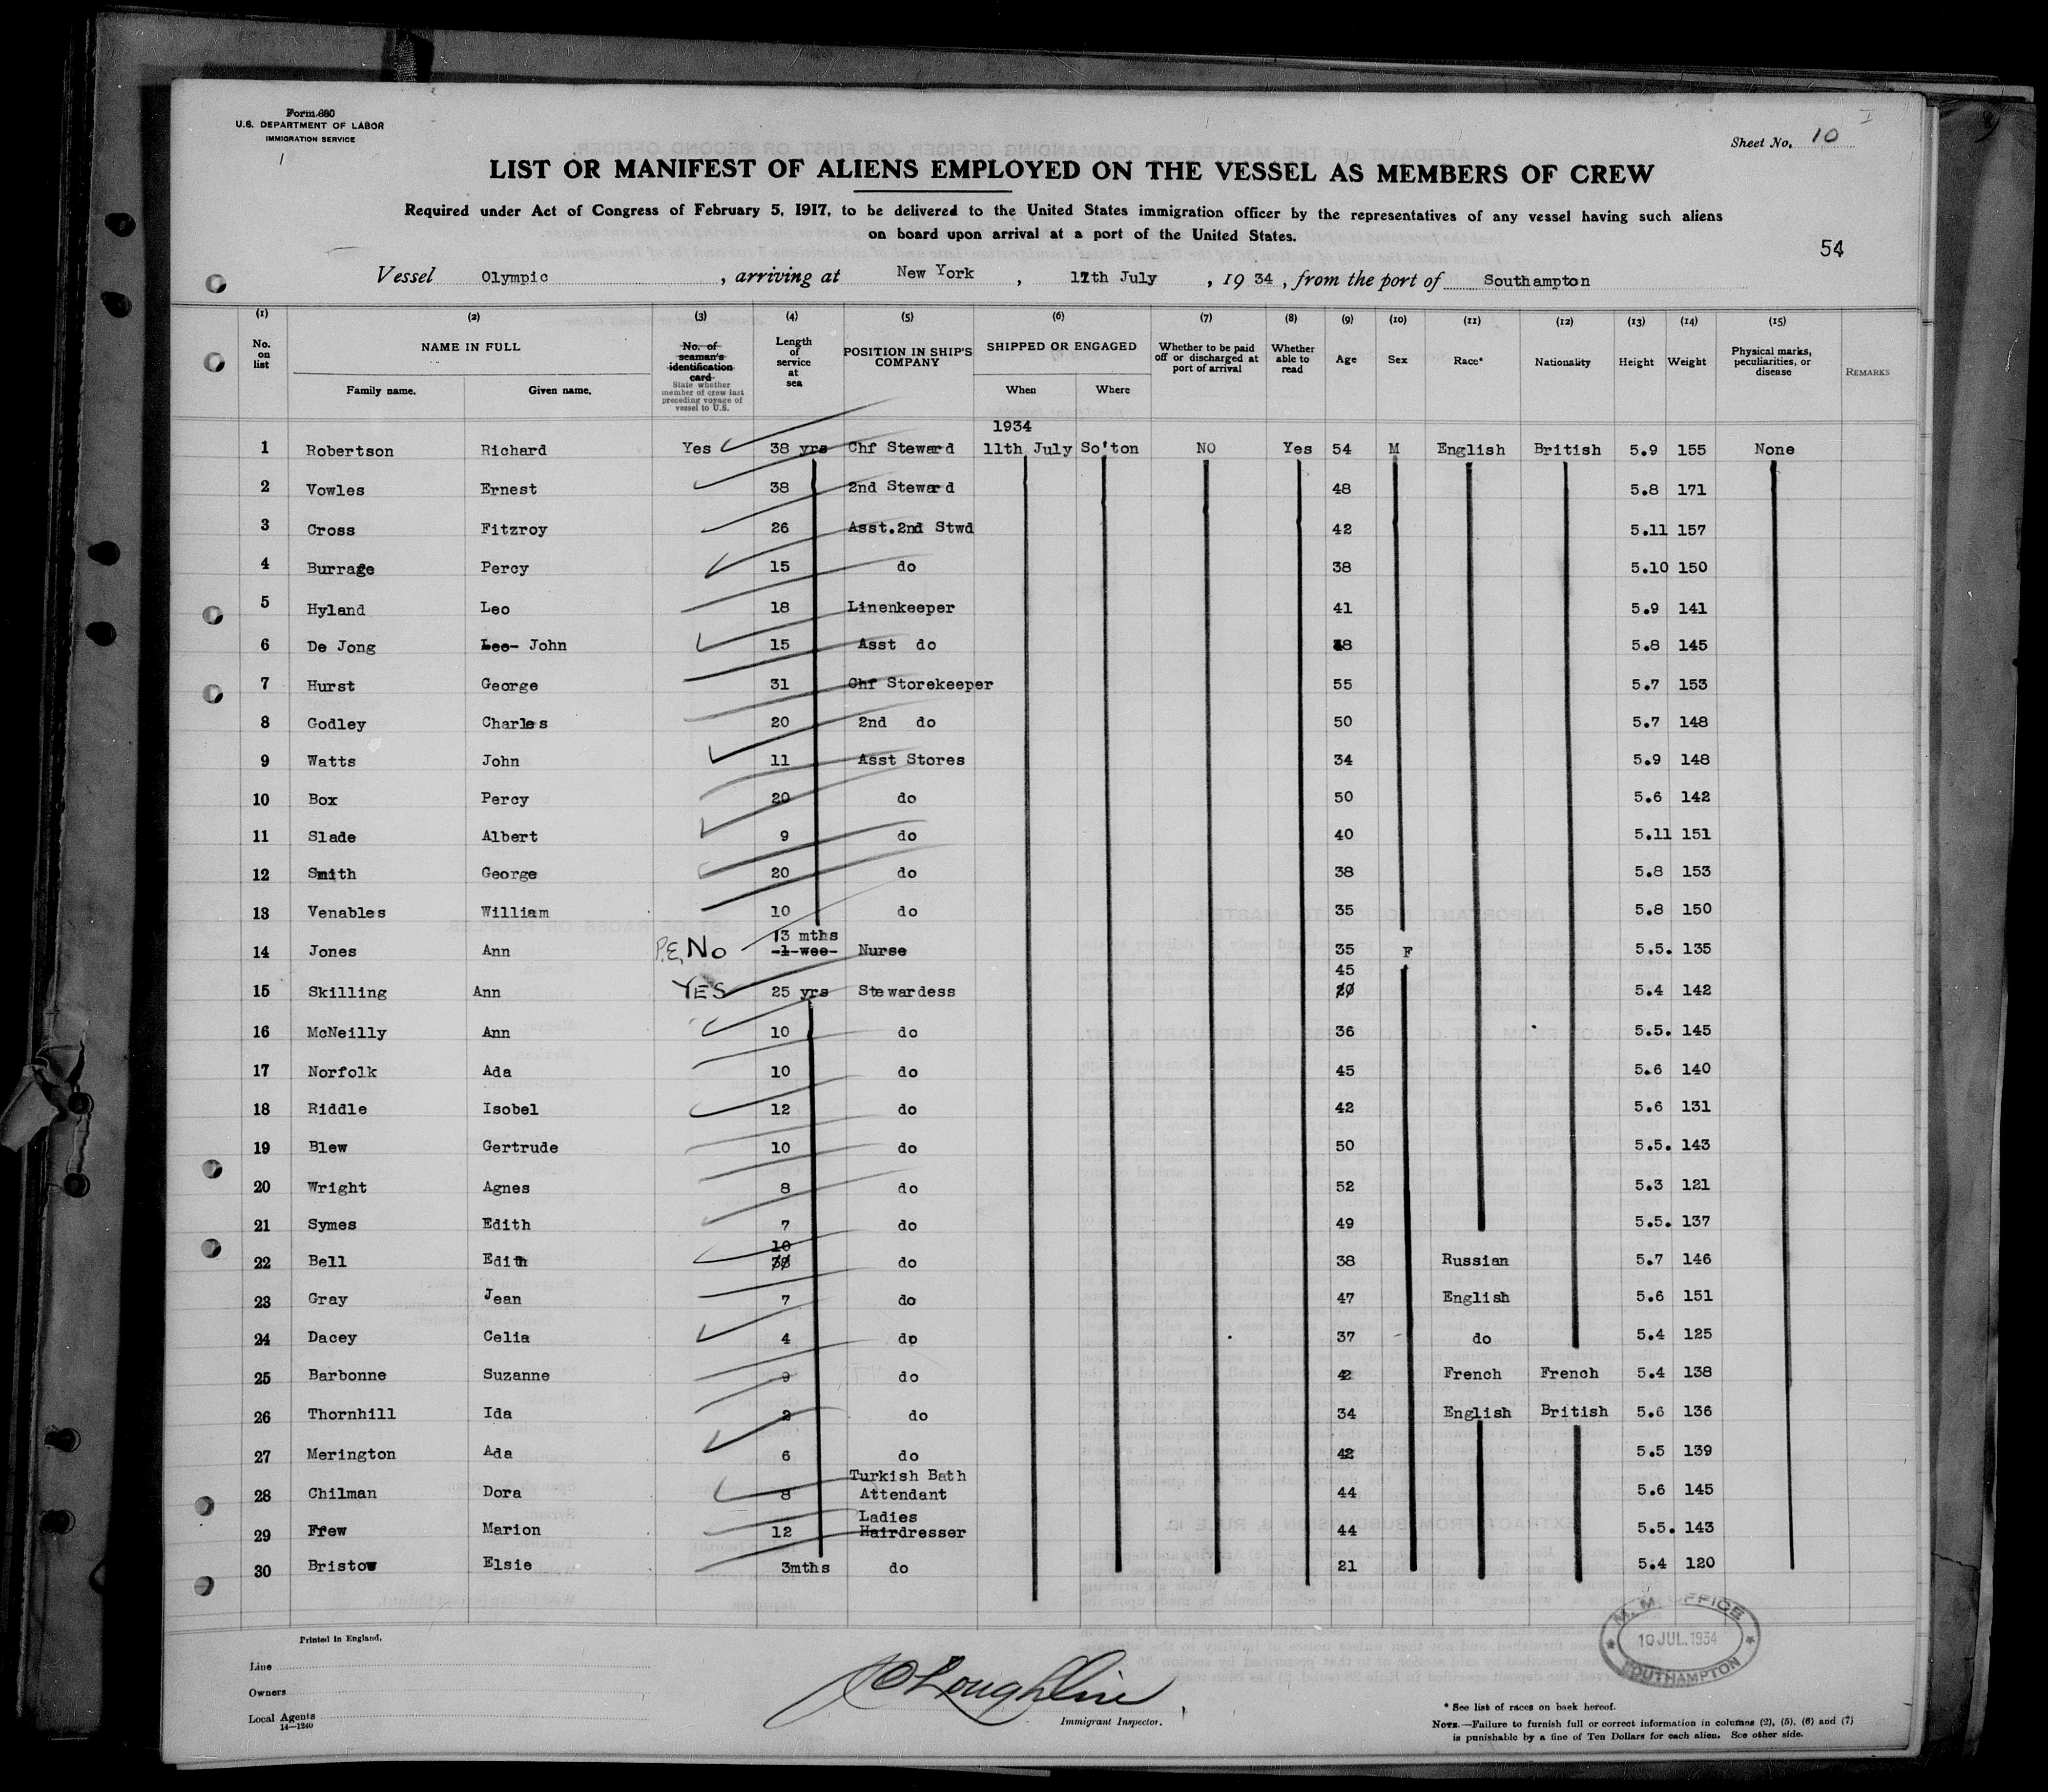 Form 680
U.S. DEPARTMENT OF LABOR
IMMIGRATION SERVICE
Sheet No. 10
LIST OR MANIFEST OF ALIENS EMPLOYED ON THE VESSEL AS MEMBERS OF CREW
Required under Act of Congress of February 5, 1917, to be delivered to the United States immigration officer by the representatives of any vessel having such aliens
on board upon arrival at a port of the United States.
54
Vessel Olympic, arriving at New York, 17th July, 1934, from the port of Southampton
(1) (2) (3) (4) (5) (6) (7) (8) (9) (10) (11) (12) (13) (14) (15)
No. on list NAME IN FULL No. of seaman's identification card State whether member of crew last preceding voyage of vessel to U.S. Length of service at sea POSITION IN SHIP'S COMPANY SHIPPED OR ENGAGED Whether to be paid off or discharged at port of arrival Whether able to read Age Sex Race* Nationality Height Weight Physical marks, peculiarities, or disease REMARKS
Family name. Given name. When Where
1934
1 Robertson Richard Yes 38 yrs Chf Steward 11th July So'ton NO Yes 54 M English British 5.9 155 None
2 Vowles Ernest 38 2nd Steward 48 5.8 171
3 Cross Fitzroy 26 Asst.2nd Stwd 42 5.11 157
4 Burrage Percy 15 do 38 5.10 150
5 Hyland Leo 18 Linenkeeper 41 5.9 141
6 De Jong Leo- John 15 Asst do 38 5.8 145
7 Hurst George 31 Chf Storekeeper 55 5.7 153
8 Godley Charles 20 2nd do 50 5.7 148
9 Watts John 11 Asst Stores 34 5.9 148
10 Box Percy 20 do 50 5.6 142
11 Slade Albert 9 do 40 5.11 151
12 Smith George 20 do 38 5.8 153
13 Venables William 10 do 35 5.8 150
13 mths
14 Jones Ann P.E, No -1-wee- Nurse 35 F 5.5. 135
45
15 Skilling Ann YES 25 yrs Stewardess 5.4 142
16 McNeilly Ann 10 do 36 5.5. 145
17 Norfolk Ada 10 do 45 5.6 140
18 Riddle Isobel 12 do 42 5.6 131
19 Blew Gertrude 10 do 50 5.5. 143
20 Wright Agnes 8 do 52 5.3 121
21 Symes Edith 7 do 49 5.5. 137
10
22 Bell Edith do 38 Russian 5.7 146
23 Gray Jean 7 do 47 English 5.6 151
24 Dacey Celia 4 do 37 do 5.4 125
25 Barbonne Suzanne 9 do 42 French French 5.4 138
26 Thornhill Ida 2 do 34 English British 5.6 136
27 Merington Ada 6 do 42 5.5 139
Turkish Bath
28 Chilman Dora 8 Attendant 44 5.6 145
Ladies
29 Frew Marion 12 Hairdresser 44 5.5. 143
30 Bristow Elsie 3mths do 21 5.4 120
Printed in England.
M. M. OFFICE
10 JUL.1934
SOUTHAMPTON
Line
Owners
Local Agents
14—1240
JCLoughlin
Immigrant Inspector.
* See list of races on back hereof.
NOTE.—Failure to furnish full or correct information in columns (2), (5), (6) and (7)
is punishable by a fine of Ten Dollars for each alien. See other side.